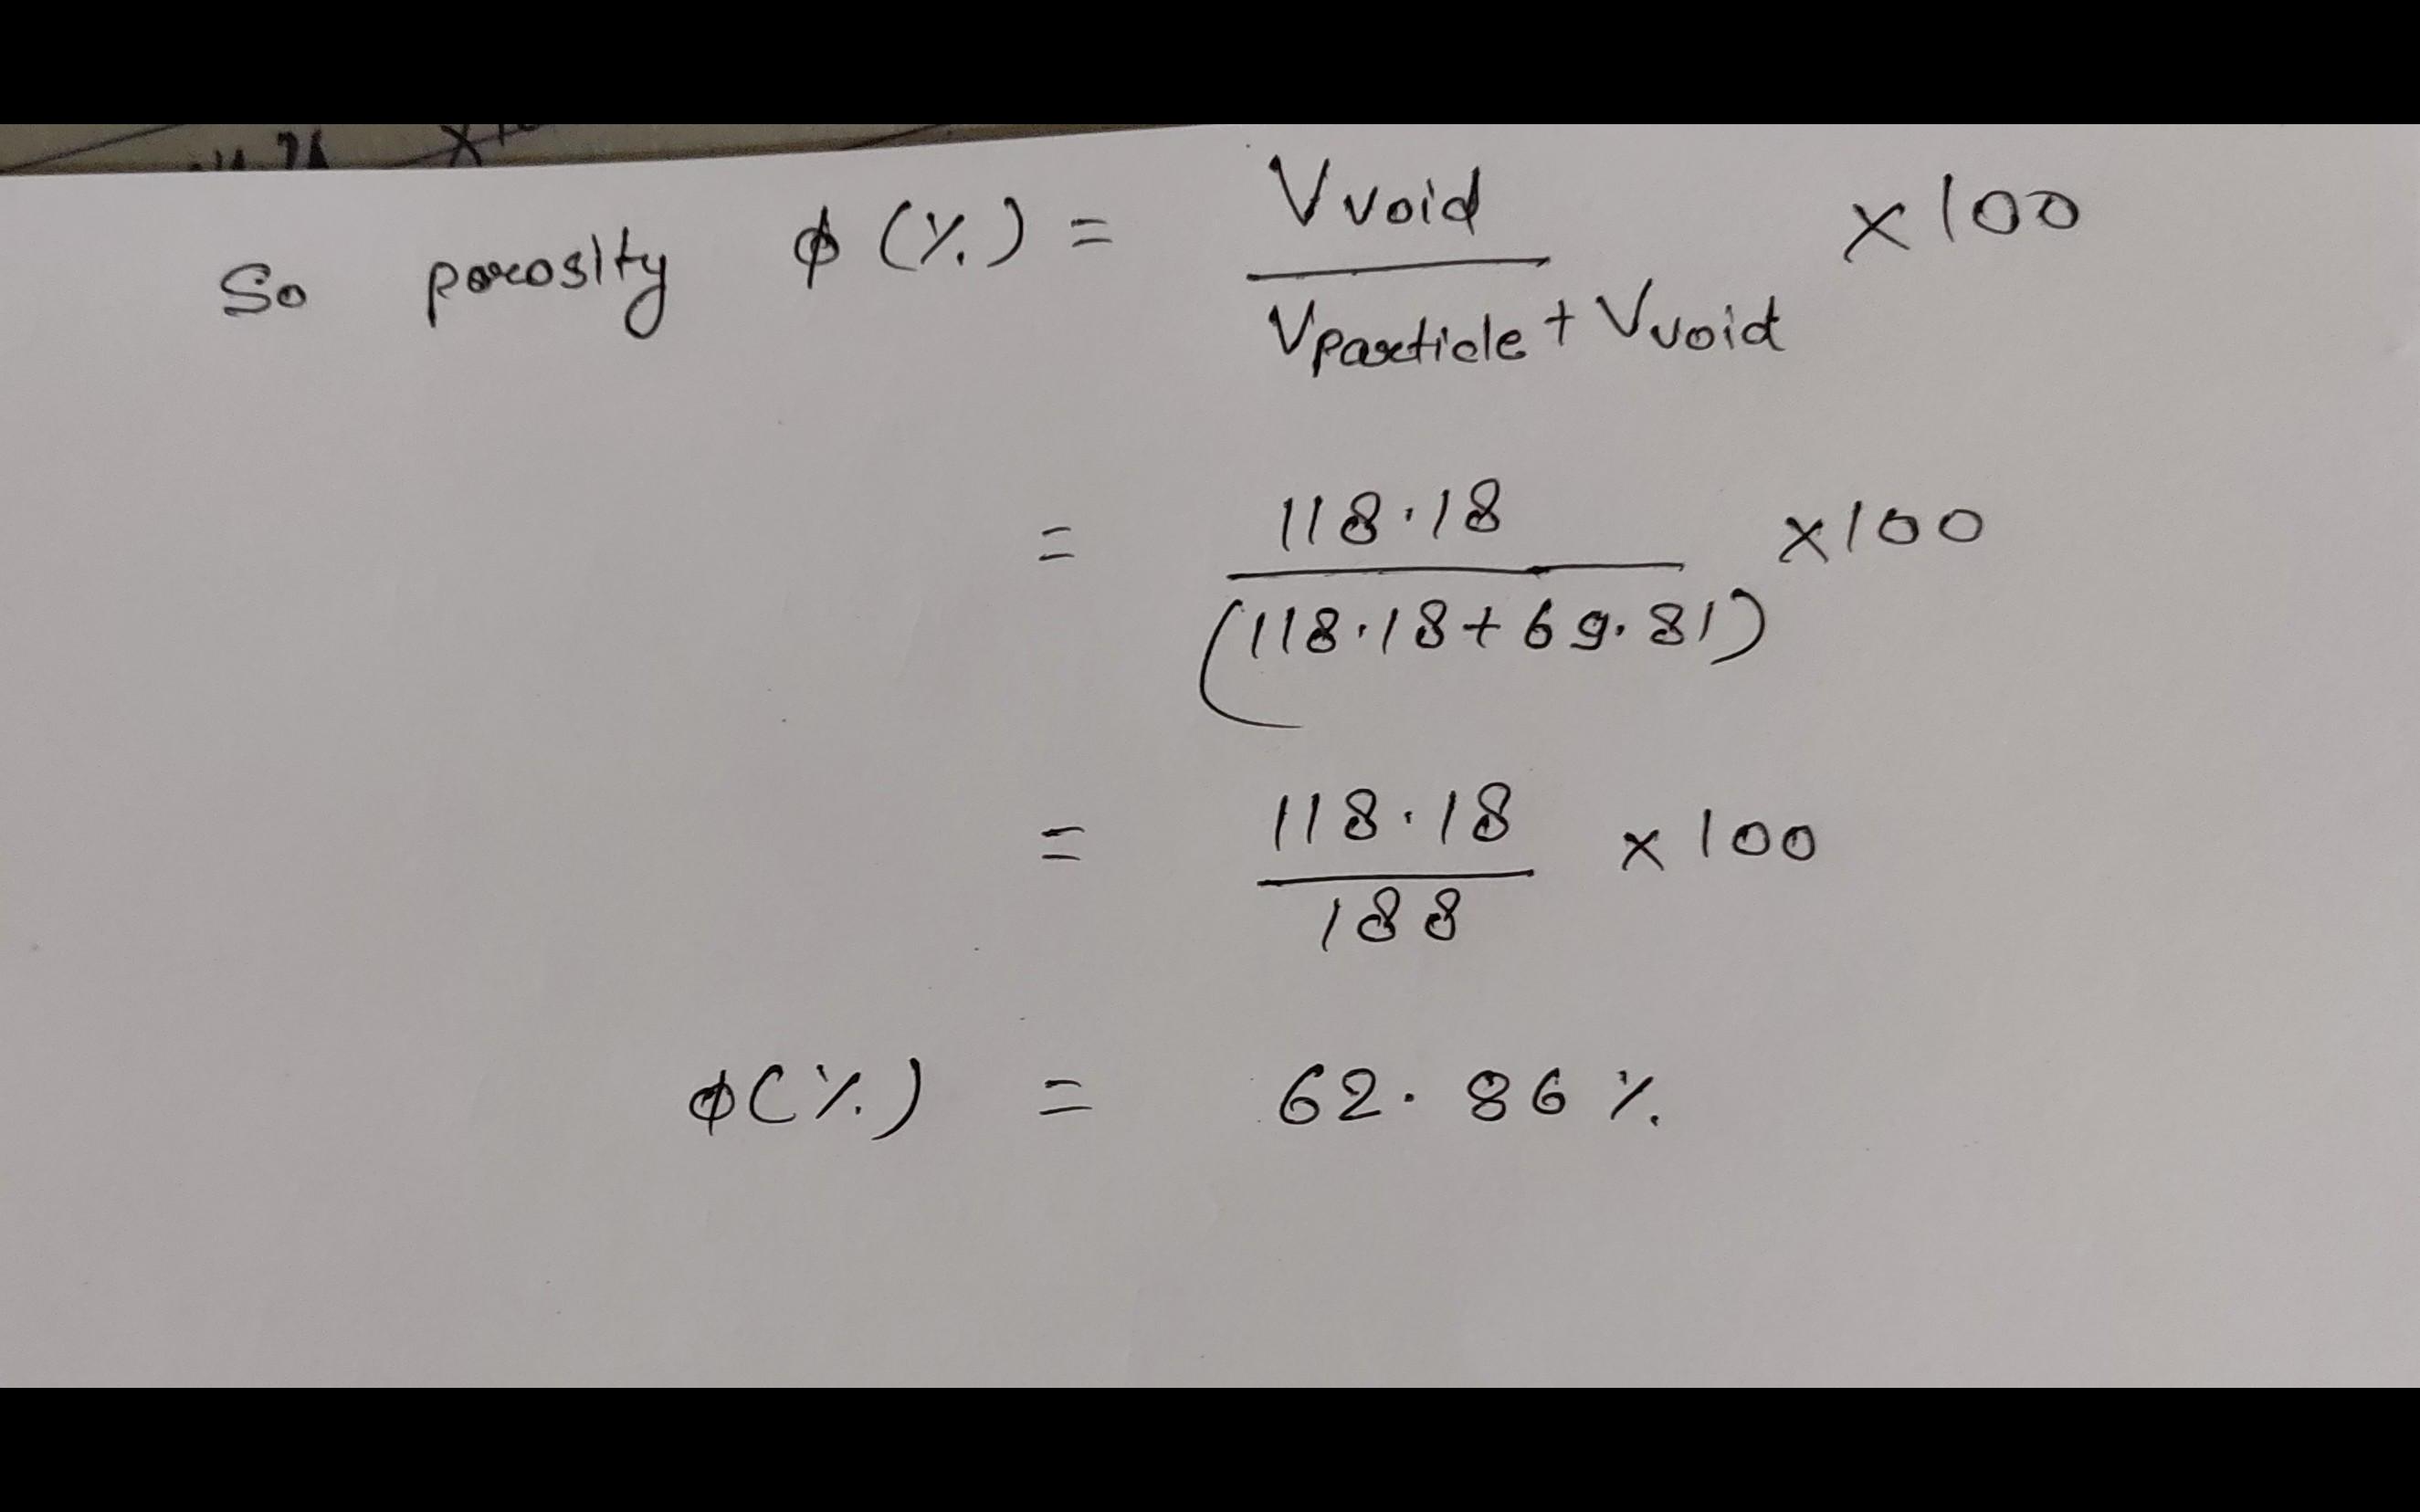 So porosity ϕ (%) = Vvoid / Vparticle + Vvoid × 100
= 118.18 / (118.18 + 69.81) × 100
= 118.18 / 188 × 100
ϕ(%) = 62.86 %